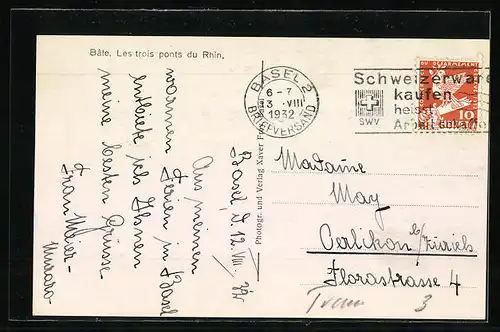 Bâle. Les trois ponts du Rhin.
BASEL 2
6-7
3.VIII
1932
BRIEFVERSAND
Schweizerware
kaufen
heisst
Arbeit
SWV
DU DÉSARMEMENT
10
Photogr. und Verlag Xaver
Basel, d. 12. VIII. 32
Aus meinen
warmen Ferien in Basel
entbiete ich Ihnen
meine besten Grüsse
Frau Meier-
Madame
May
Oerlikon b/Zürich
Florastrasse 4
3